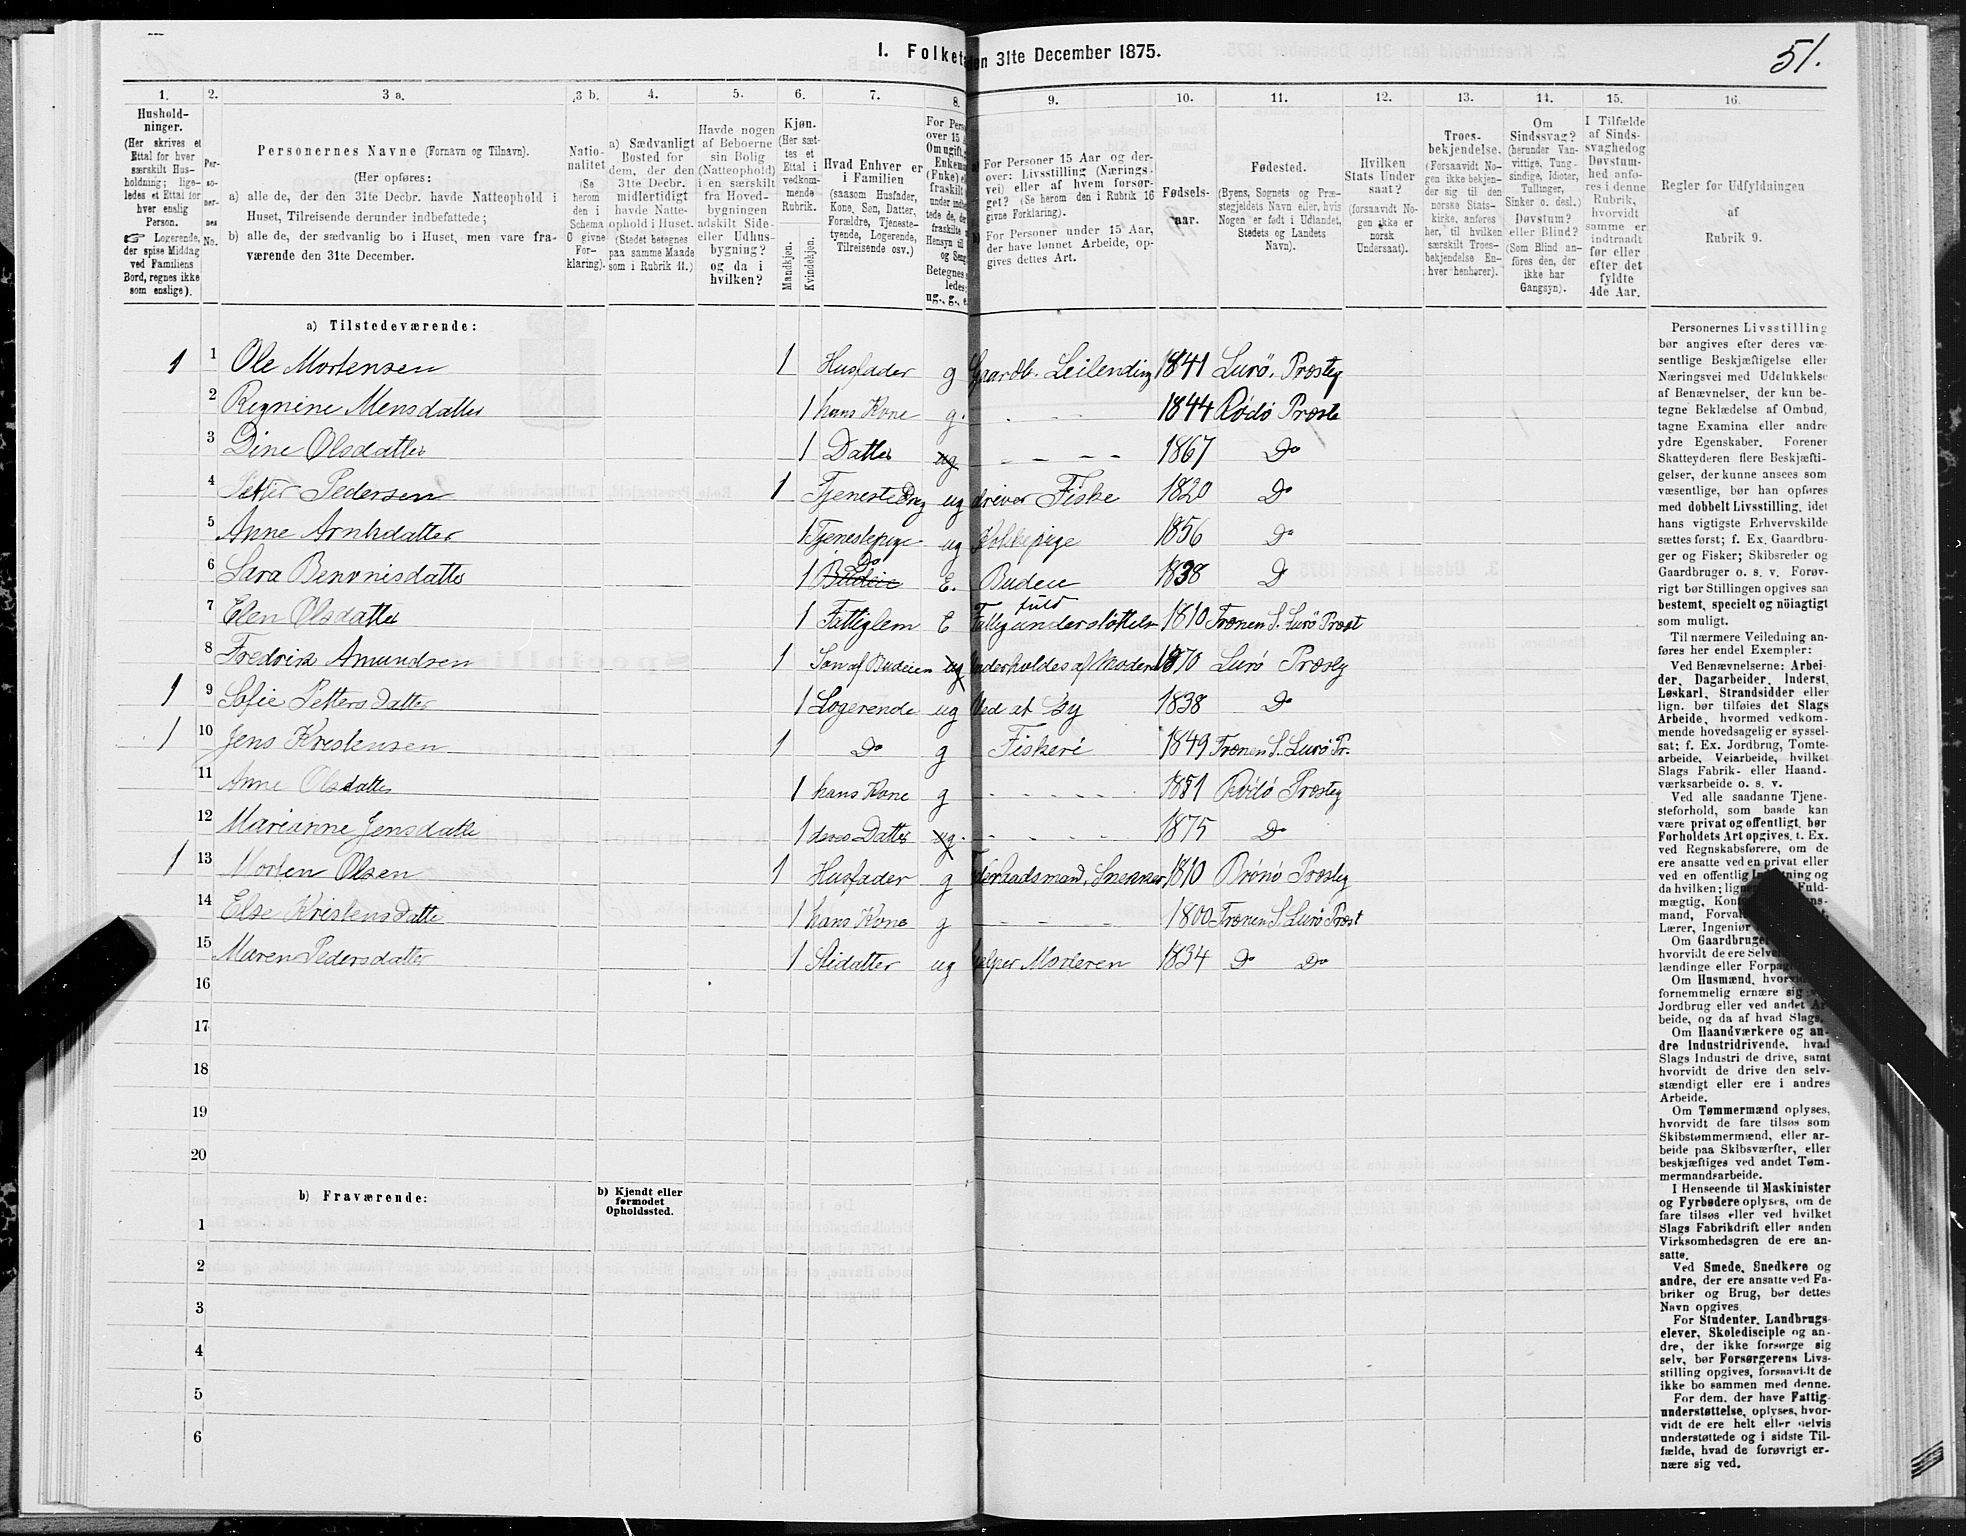 51.
I. Folketæ den 31te December 1875.
1. 2. 3 a. 3 b. 4. 5. 6. 7. 8. 9. 10. 11. 12. 13. 14. 15. 16.
Hushold-
ninger.
(Her skrives et
Ettal for hver
særskilt Hus-
holdning; lige-
ledes et Ettal for
hver enslig
Person.
☞ Logerende,
der spise Middag
ved Familiens
Bord, regnes ikke
som enslige).
Per-
so-
ner-
nes
No.
Personernes Navne (Fornavn og Tilnavn).
(Her opføres:
a) alle de, der den 31te Decbr. havde Natteophold i
Huset, Tilreisende derunder indbefattede;
b) alle de, der sædvanlig bo i Huset, men vare fra-
værende den 31te December.
Natio-
nalitet
(Se
herom
den i
Schema
O givne
For-
klaring).
a) Sædvanligt
Bosted for
dem, der den
31te Decbr.
midlertidigt
havde Natte-
ophold i Huset.
(Stedet betegnes
paa samme Maade
som i Rubrik 11.)
Havde nogen
af Beboerne
sin Bolig
(Natteophold)
i en særskilt
fra Hoved-
bygningen
adskilt Side-
eller Udhus-
bygning?
og da i
hvilken?
Kjøn.
(Her sæt-
tes et
Ettal i
vedkom-
mende
Rubrik.
Mandkjøn.
Kvindekjøn.
Hvad Enhver er
i Familien
(saasom Husfader,
Kone, Søn, Datter,
Forældre, Tjeneste-
tyende, Logerende,
Tilreisende osv.)
For Pers
over 15 A
Om ugift, g
Enkema
(Enke) e
fraskilt
a) For Personer 15 Aar og der-
over: Livsstilling (Nærings-
vei) eller af hvem forsør-
get? (Se herom den i Rubrik 16
givne Forklaring).
b) For Personer under 15 Aar,
der have lønnet Arbeide, op-
gives dettes Art.
Fødsels-
aar.
Fødested.
(Byens, Sognets og Præ-
stegjeldets Navn eller, hvis
Nogen er født i Udlandet,
Stedets og Landets
Navn).
Hvilken
Stats Under
saat?
(forsaavidt No-
gen ikke er
norsk
Undersaat).
Troes-
bekjendelse.
(Forsaavidt No-
gen ikke bekjen-
der sig til den
norske Stats-
kirke, anføres
her, til hvilken
særskilt Troes-
bekjendelse En-
hver henhører).
Om
Sindssvag?
(herunder Van-
vittige, Tung-
sindige, Idioter,
Tullinger,
Sinker o. desl.)
Døvstum?
eller Blind?
(Som Blind an-
føres den, der
ikke har
Gangsyn).
I Tilfælde
af Sinds-
svaghed og
Døvstum-
hed anfø-
res i denne
Rubrik,
hvorvidt
samme er
indtraadt
før eller
efter det
fyldte
4de Aar.
Regler for Udfyldningen
af
Rubrik 9.
a) Tilstedeværende:
1 1 Ole Mortensen 1 Husfader g Gaardb. Leilending 1841 Lurø. Præstg
2 Regnine Mensdatter 1 hans Kone g. 1844 Rødø Præste
3 Dine Olsdatter 1 Datter ug 1867 Do
4 Petter Pedersen 1 Tjenestedrg ug driver Fiske 1820 Do
5 Anne Arntsdatter 1 Tjenestepige ug Kokkepige 1856 Do
6 Sara Benonisdatter 1 Budeie Do E. Budeie 1838 Do
7 Elen Olsdatter 1 Fattiglem E Fattig fuld understøttelse 1810 Trænen S. Lurø Præst
8 Fredrik Amundsen 1 Søn af Budeien ug Underholdes af Moderen 1870 Lurø Præstg
1 9 Sofie Pettersdatter 1 Logerende ug Ved at Sy 1838 Do
1 10 Jens Kristensen 1 Do g Fiskeri 1849 Trænen S. Lurø Pr.
11 Anne Olsdatter 1 hans Kone g 1851 Rødø Præstg
12 Marianne Jensdatter 1 deres Datter ug. 1875 Do
1 13 Morten Olsen 1 Husfader g Føderaadsmand, Snekker 1810 Brønø Præstg
14 Else Kristensdatter 1 hans Kone g 1800 Trænen S. Lurø Præst
15 Maren Pedersdatter 1 Stidatter ug hjelper Moderen 1834 Do Do
16
17
18
19
20
b) Fraværende:
b) Kjendt eller
formodet
Opholdssted.
1
2
3
4
5
6
Personernes Livsstilling
bør angives efter deres væ-
sentlige Beskjæftigelse eller
Næringsvei med Udelukkelse
af Benævnelser, der kun be-
tegne Beklædelse af Ombud,
tagne Examina eller andre
ydre Egenskaber. Forener
Skatteyderen flere Beskjæfti-
gelser, der kunne ansees som
væsentlige, bør han opføres
med dobbelt Livsstilling, idet
hans vigtigste Erhvervskilde
sættes først; f. Ex. Gaardbru-
ger og Fisker; Skibsreder og
Gaardbruger o. s. v. Forøv-
rigt bør Stillingen opgives saa
bestemt, specielt og nöiagtigt
som muligt.
Til nærmere Veiledning an-
føres her endel Exempler:
Ved Benævnelserne: Arbei-
der, Dagarbeider, Inderst,
Løskarl, Strandsidder eller
lign. bør tilføies det Slags
Arbeide, hvormed vedkom-
mende hovedsagelig er syssel-
sat; f. Ex. Jordbrug, Tomte-
arbeide, Veiarbeide, hvilket
Slags Fabrik- eller Haand-
værksarbeide o. s. v.
Ved alle saadanne Tjene-
steforhold, som baade kan
være privat og offentligt, bør
Forholdets Art opgives, t. Ex.
ved Regnskabsførere, om de
ere ansatte ved en privat eller
ved en offentlig Indretning og
da hvilken; Fuld-
mægtig,
mand, Forval
Lærer, Ingeniør
Om Gaardbruger
hvorvidt de ere Selve
lændinge eller Forpag
Om Husmænd, hvorvidt
fornemmelig ernære sig
Jordbrug eller ved andet Ar
beide, og da af hvad Slags.
Om Haandværkere og an-
dre Industridrivende, hvad
Slags Industri de drive, samt
hvorvidt de drive den selv-
stændigt eller ere i andres
Arbeide.
Om Tømmermænd oplyses,
hvorvidt de fare tilsøs som
Skibstømmermænd, eller ar-
beide paa Skibsværfter, eller
beskjæftiges ved andet Tøm-
mermandsarbeide.
I Henseende til Maskinister
og Fyrbødere oplyses, om de
fare tilsøs eller ved hvilket
Slags Fabrikdrift eller anden
Virksomhedsgren de ere an-
satte.
Ved Smede, Snedkere og
andre, der ere ansatte ved Fa-
briker og Brug, bør dettes
Navn opgives
For Studenter, Landbrugs-
elever, Skoledisciple og an-
dre, der ikke forsørge sig
selv, bør Forsørgerens Livs-
stilling opgives, forsaavidt de
ikke bo sammen med denne.
For dem, der have Fattig-
understøttelse, oplyses, hvor-
vidt de ere helt eller delvis
understøttede og i sidste Til-
fælde, hvad de forøvrigt er-
nære sig ved.